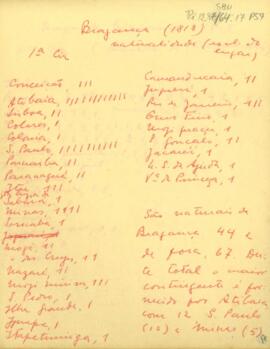 SBU
P59
Bragança (1818)
naturalidade
lugar)
1ª Cia
Conceição, III
Atibaia, IIIIIIIIIIII
Lisboa, II
Colonia, I
S. Paulo, IIIIIIIIII
Parnaiba, II
Paranaguá, II
Itú
Sabará, I
Minas, IIIII
Sorocaba, I
Mogi
das Cruzes, II
Nazaré, II
Mogi mirim, III
S. Pedro, I
Ilha Grande, I
Itapetininga, I
Camanducaia, II
Juqueri, I
Rio de Janeiro, II
Ouro Fino, I
Mogi guaçu, I
S. Gonçalo, I
Jacareí, I
N. S. da Ajuda, I
Vª da Princeza, I
São naturais de
Bragança 44 e
de fora, 67. Deste
total o maior
contingente é for-
mado por Atibaia
com 12, S. Paulo
(10) e Minas (5)